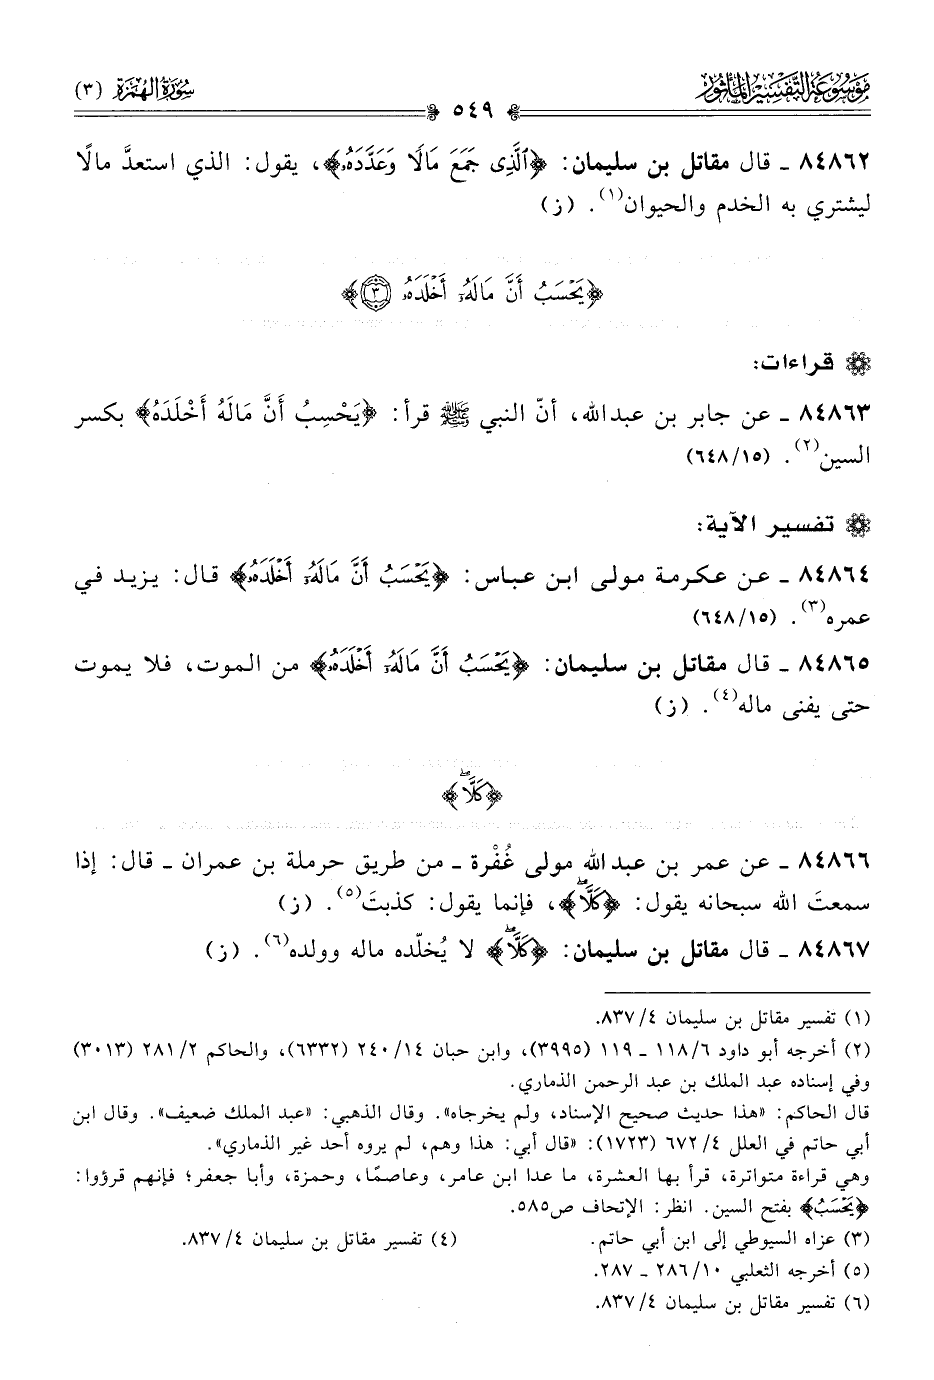 موسوعة التفسير المأثور
٥٤٩
سورة الهمزة (٣)
٨٤٨٦٢ - قال مقاتل بن سليمان: ﴿ٱلَّذِى جَمَعَ مَالًا وَعَدَّدَهُۥ﴾، يقول: الذي استعدَّ مالًا
ليشتري به الخدم والحيوان(١). (ز)
﴿يَحْسَبُ أَنَّ مَالَهُۥٓ أَخْلَدَهُۥ ٣﴾
قراءات:
٨٤٨٦٣ - عن جابر بن عبدالله، أنّ النبي ﷺ قرأ: ﴿يَحْسِبُ أَنَّ مَالَهُ أَخْلَدَهُ﴾ بكسر
السين(٢). (٦٤٨/١٥)
تفسير الآية:
٨٤٨٦٤ - عن عكرمة مولى ابن عباس: ﴿يَحْسَبُ أَنَّ مَالَهُۥٓ أَخْلَدَهُۥ﴾ قال: يزيد في
عمره(٣). (٦٤٨/١٥)
٨٤٨٦٥ - قال مقاتل بن سليمان: ﴿يَحْسَبُ أَنَّ مَالَهُۥٓ أَخْلَدَهُۥ﴾ من الموت، فلا يموت
حتى يفنى ماله(٤). (ز)
﴿كَلَّاۖ﴾
٨٤٨٦٦ - عن عمر بن عبدالله مولى غُفْرة - من طريق حرملة بن عمران - قال: إذا
سمعتَ الله سبحانه يقول: ﴿كَلَّاۖ﴾، فإنما يقول: كذبتَ(٥). (ز)
٨٤٨٦٧ - قال مقاتل بن سليمان: ﴿كَلَّاۖ﴾ لا يُخلّده ماله وولده(٦). (ز)
(١) تفسير مقاتل بن سليمان ٨٣٧/٤.
(٢) أخرجه أبو داود ١١٨/٦ - ١١٩ (٣٩٩٥)، وابن حبان ٢٤٠/١٤ (٦٣٣٢)، والحاكم ٢٨١/٢ (٣٠١٣)
وفي إسناده عبد الملك بن عبد الرحمن الذماري.
قال الحاكم: «هذا حديث صحيح الإسناد، ولم يخرجاه». وقال الذهبي: «عبد الملك ضعيف». وقال ابن
أبي حاتم في العلل ٦٧٢/٤ (١٧٢٣): «قال أبي: هذا وهم، لم يروه أحد غير الذماري».
وهي قراءة متواترة، قرأ بها العشرة، ما عدا ابن عامر، وعاصمًا، وحمزة، وأبا جعفر؛ فإنهم قرؤوا:
﴿يَحْسَبُ﴾ بفتح السين. انظر: الإتحاف ص٥٨٥.
(٣) عزاه السيوطي إلى ابن أبي حاتم. (٤) تفسير مقاتل بن سليمان ٨٣٧/٤.
(٥) أخرجه الثعلبي ٢٨٦/١٠ - ٢٨٧.
(٦) تفسير مقاتل بن سليمان ٨٣٧/٤.